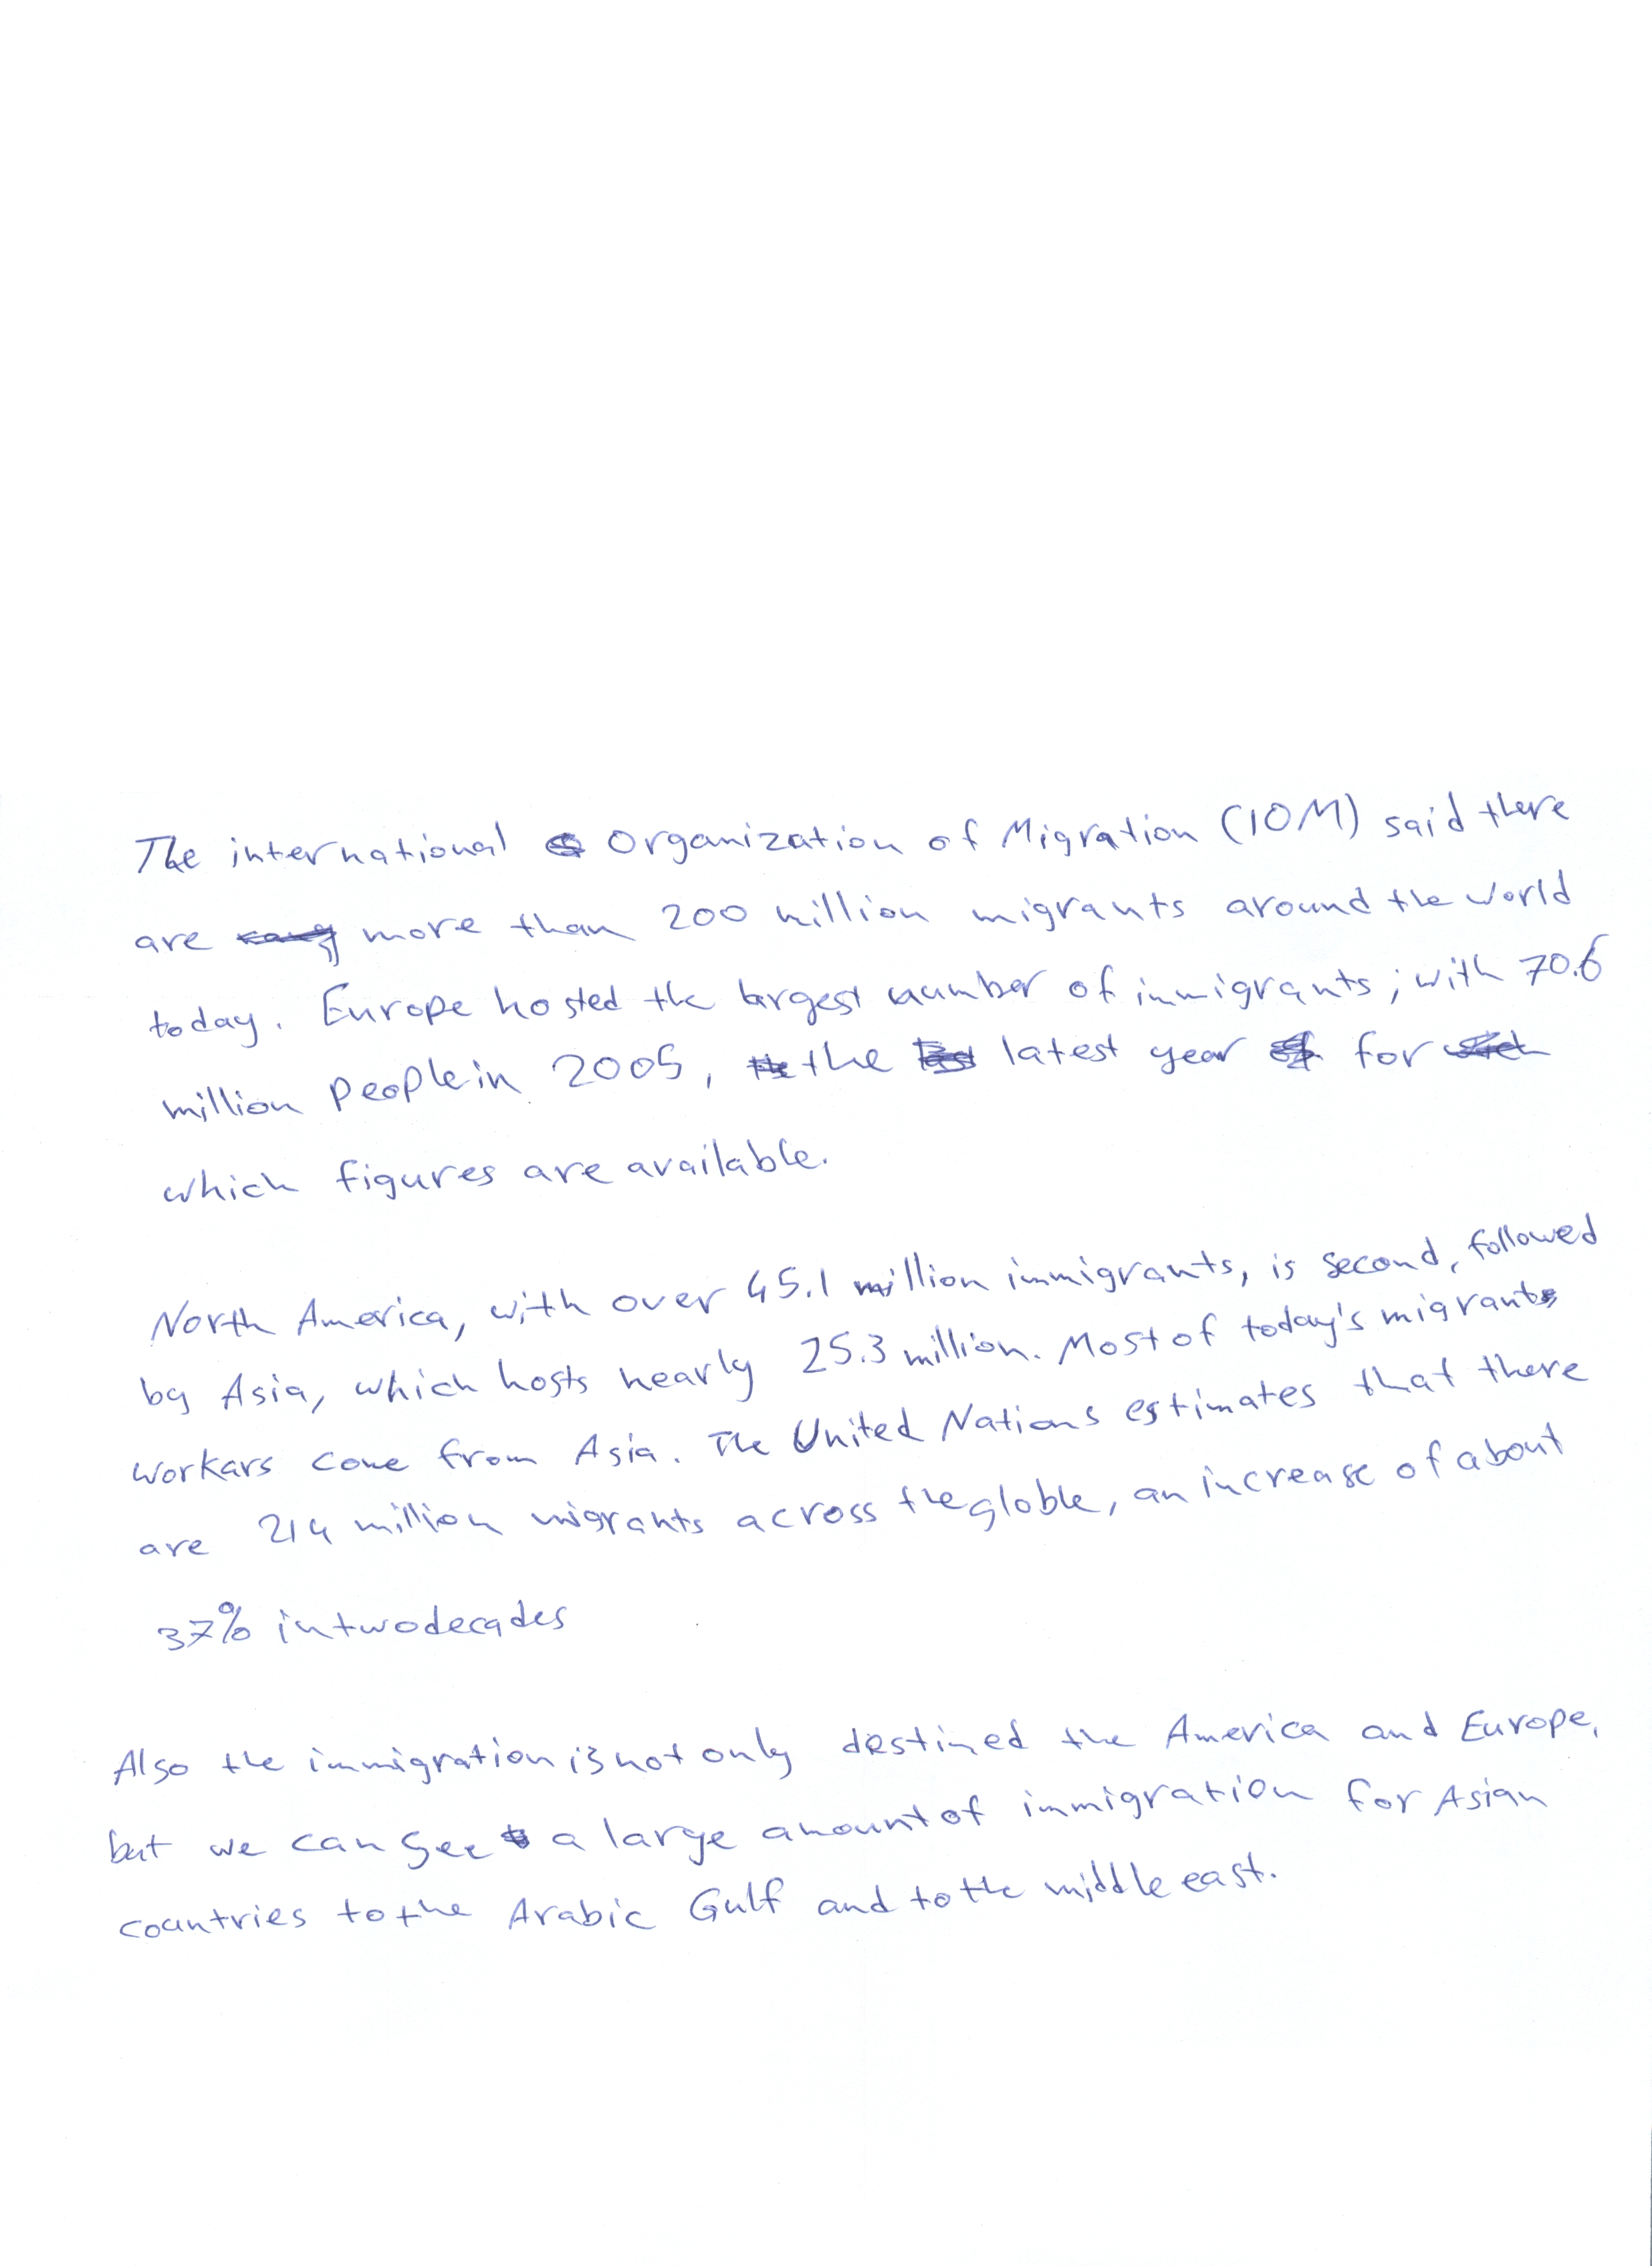 The international Organization of Migration (IOM) said there
are more than 200 million migrants around the world
today. Europe hosted the largest number of immigrants; with 70.6
million people in 2005, the latest year for
which figures are available.
North America, with over 45.1 million immigrants, is second, followed
by Asia, which hosts nearly 25.3 million. Most of today's migrants
workars come from Asia. The United Nations estimates that there
are 214 million migrants across the globle, an increase of about
37% in two decades
Also the immigration is not only destined the America and Europe,
but we can see a large amount of immigration for Asian
countries to the Arabic Gulf and to the middle east.